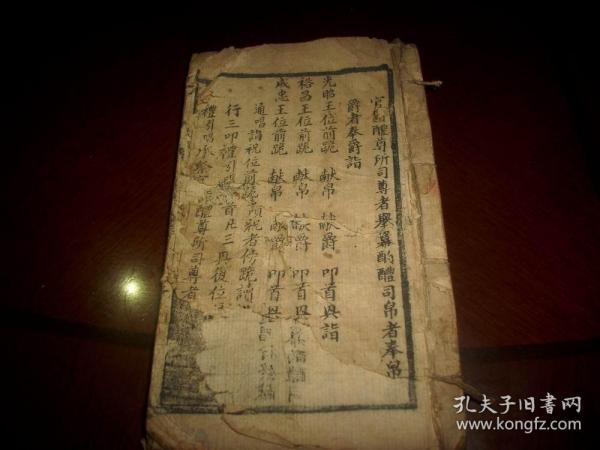 官詣醴尊所司尊者舉冪酌醴司帛者奉帛
爵者奉爵詣
光昭王位前跪 献帛 献爵 叩首興詣
裕昌王位前跪 献帛 献爵 叩首興
咸惠王位前跪 献帛 献爵 叩首興
通唱詣祝位前跪 讀祝者俯跪讀
行三叩禮引 首凡三興復位
禮引唱 醴尊所司尊者
孔夫子旧书网
www.kongfz.com